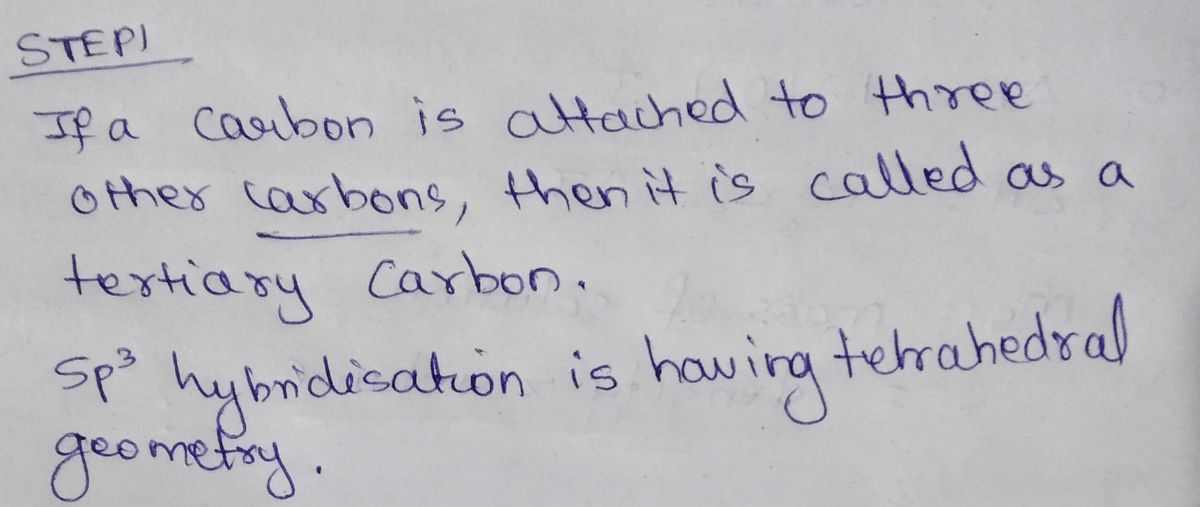 STEP1
If a carbon is attached to three
other carbons, then it is called as a
tertiary carbon.
Sp³ hybridisation is having tetrahedral
geometry.